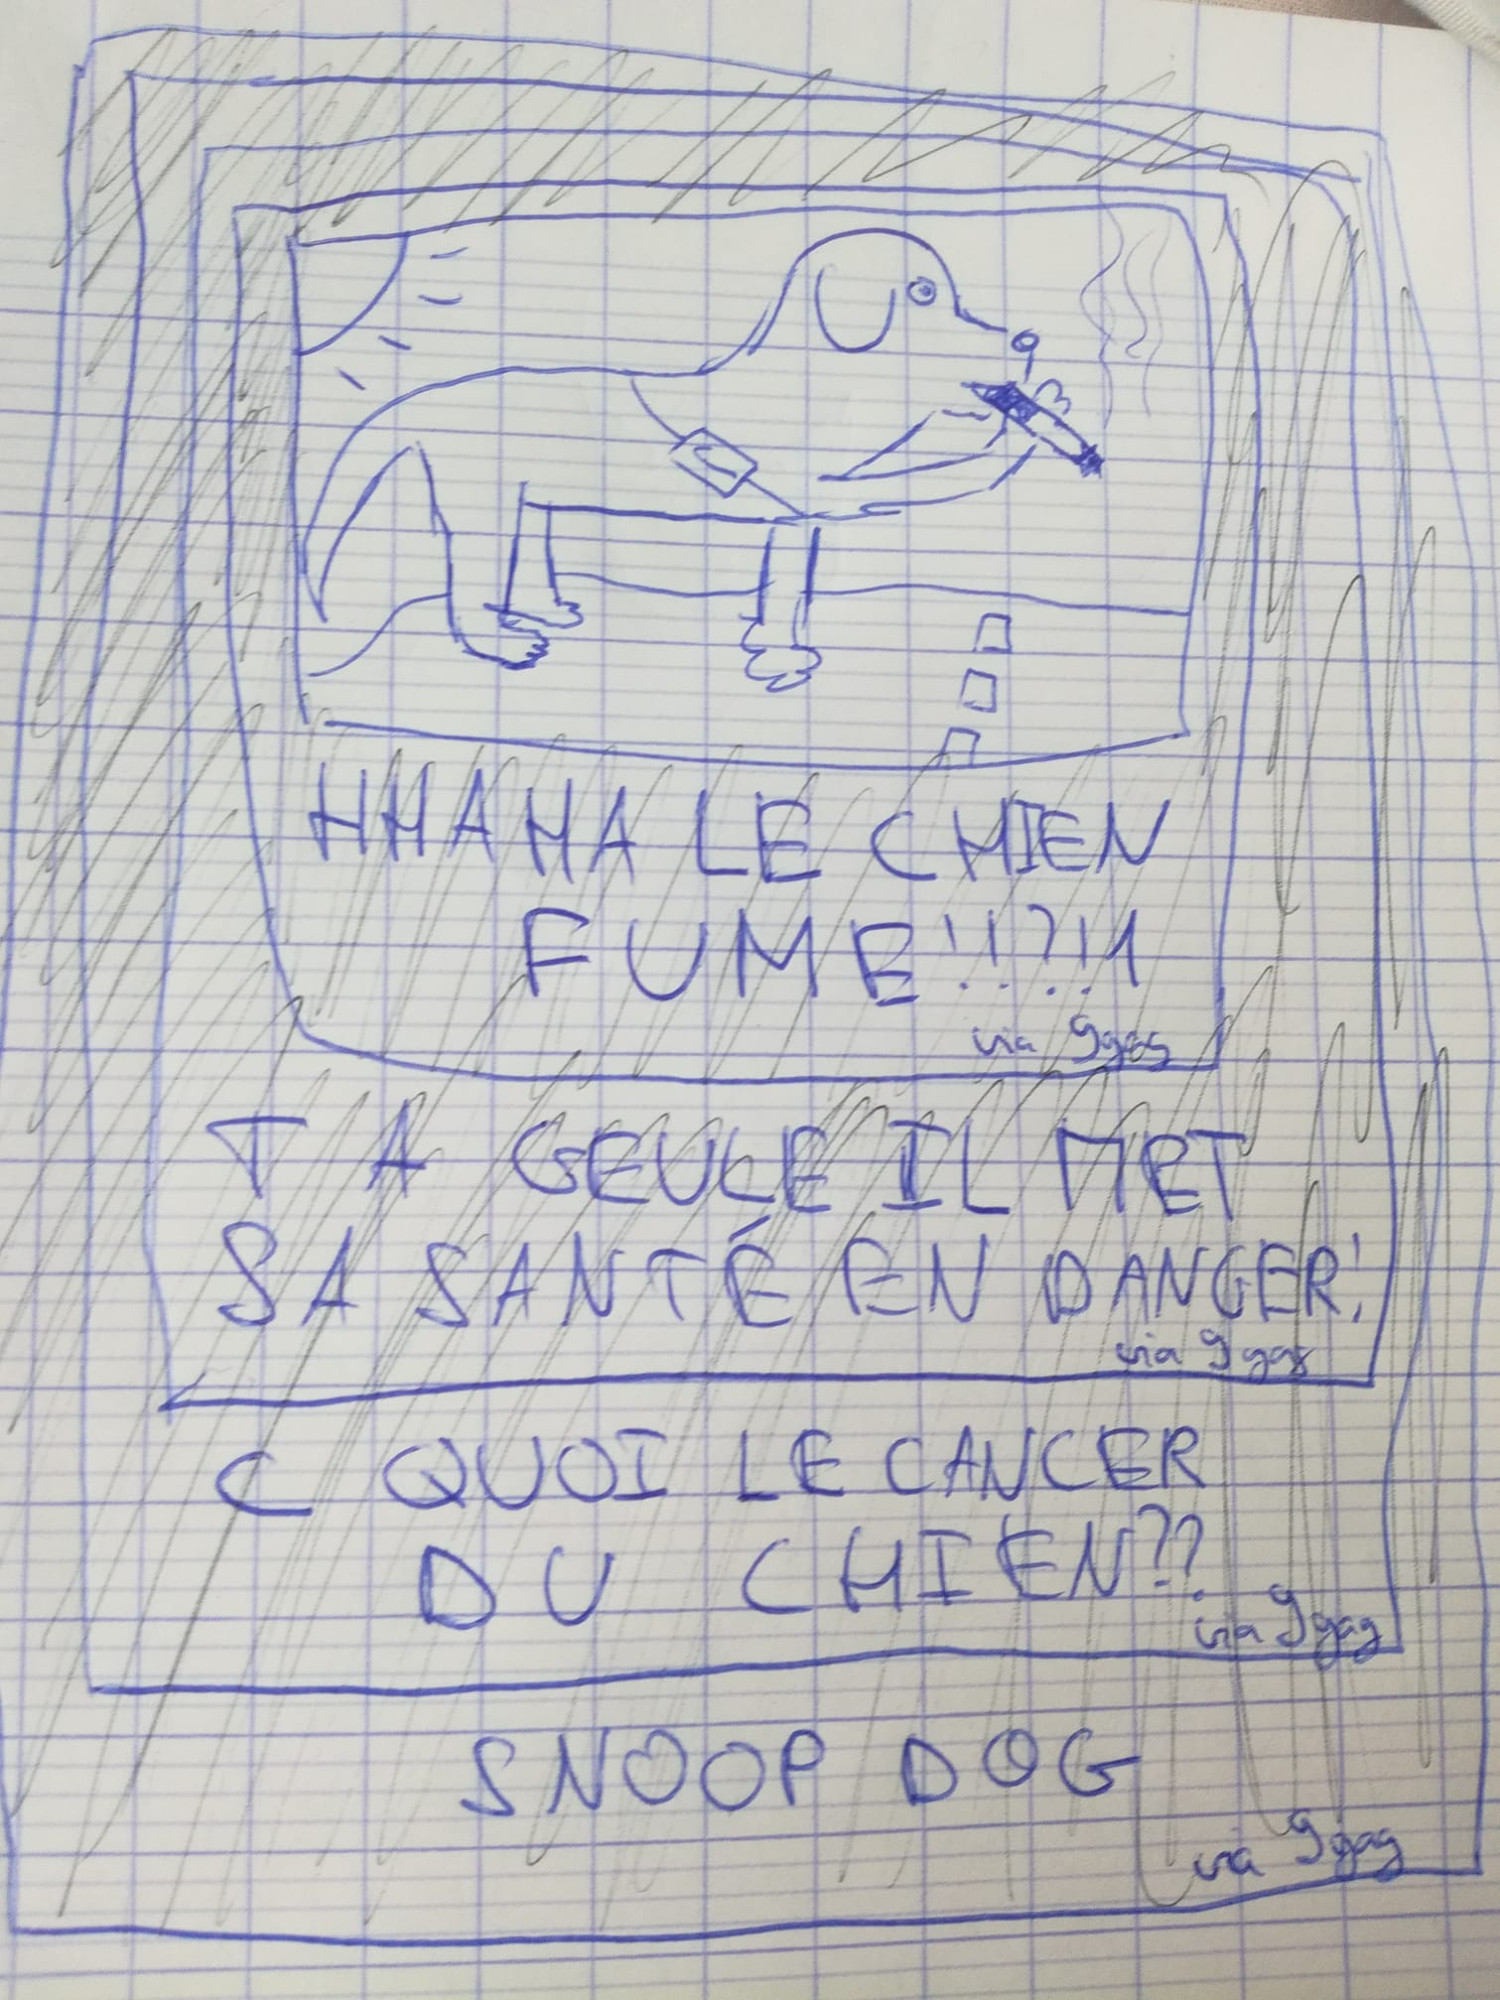 HHAHA LE CHIEN
FUME!!?!1
via 9gag
TA GEULE IL MET
SA SANTÉ EN DANGER!
via 9gag
C QUOI LE CANCER
DU CHIEN??
via 9gag
SNOOP DOG
via 9gag